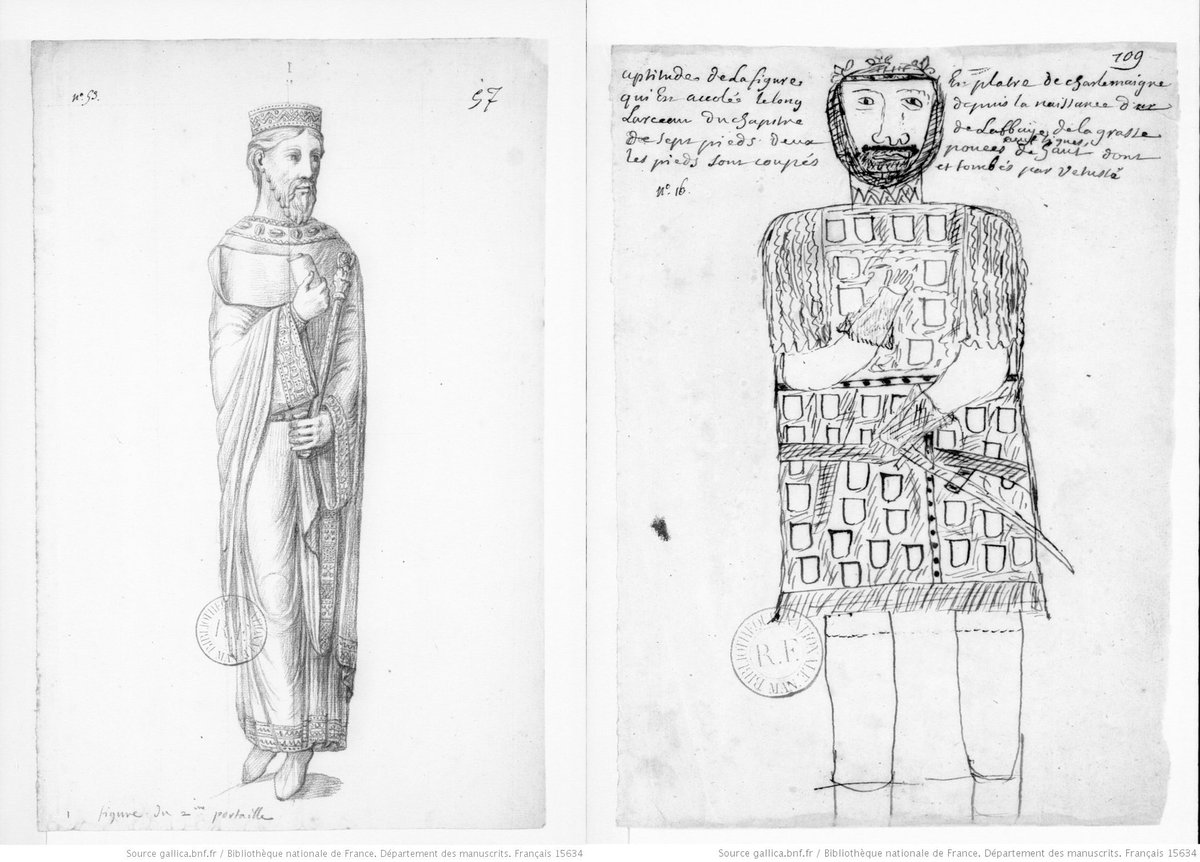 1
n.º 53.
57
1 figure du 2me portaille
BIBLIOTHÈQUE
Source gallica.bnf.fr / Bibliothèque nationale de France. Département des manuscrits. Français 15634
109
aptitudes de la figure En platre de charlemaigne
qui Est accolée le long depuis la naissance d'un
Larceau du chapitre de Labbaÿe de la grasse
de sept pieds deux pouces cinq lignes de haut dont
les pieds sont coupés et tombés par vetusté
n.º 16.
BIBLIOTHÈQUE NATIONALE MAN
R.F.
Source gallica.bnf.fr / Bibliothèque nationale de France. Département des manuscrits. Français 15634